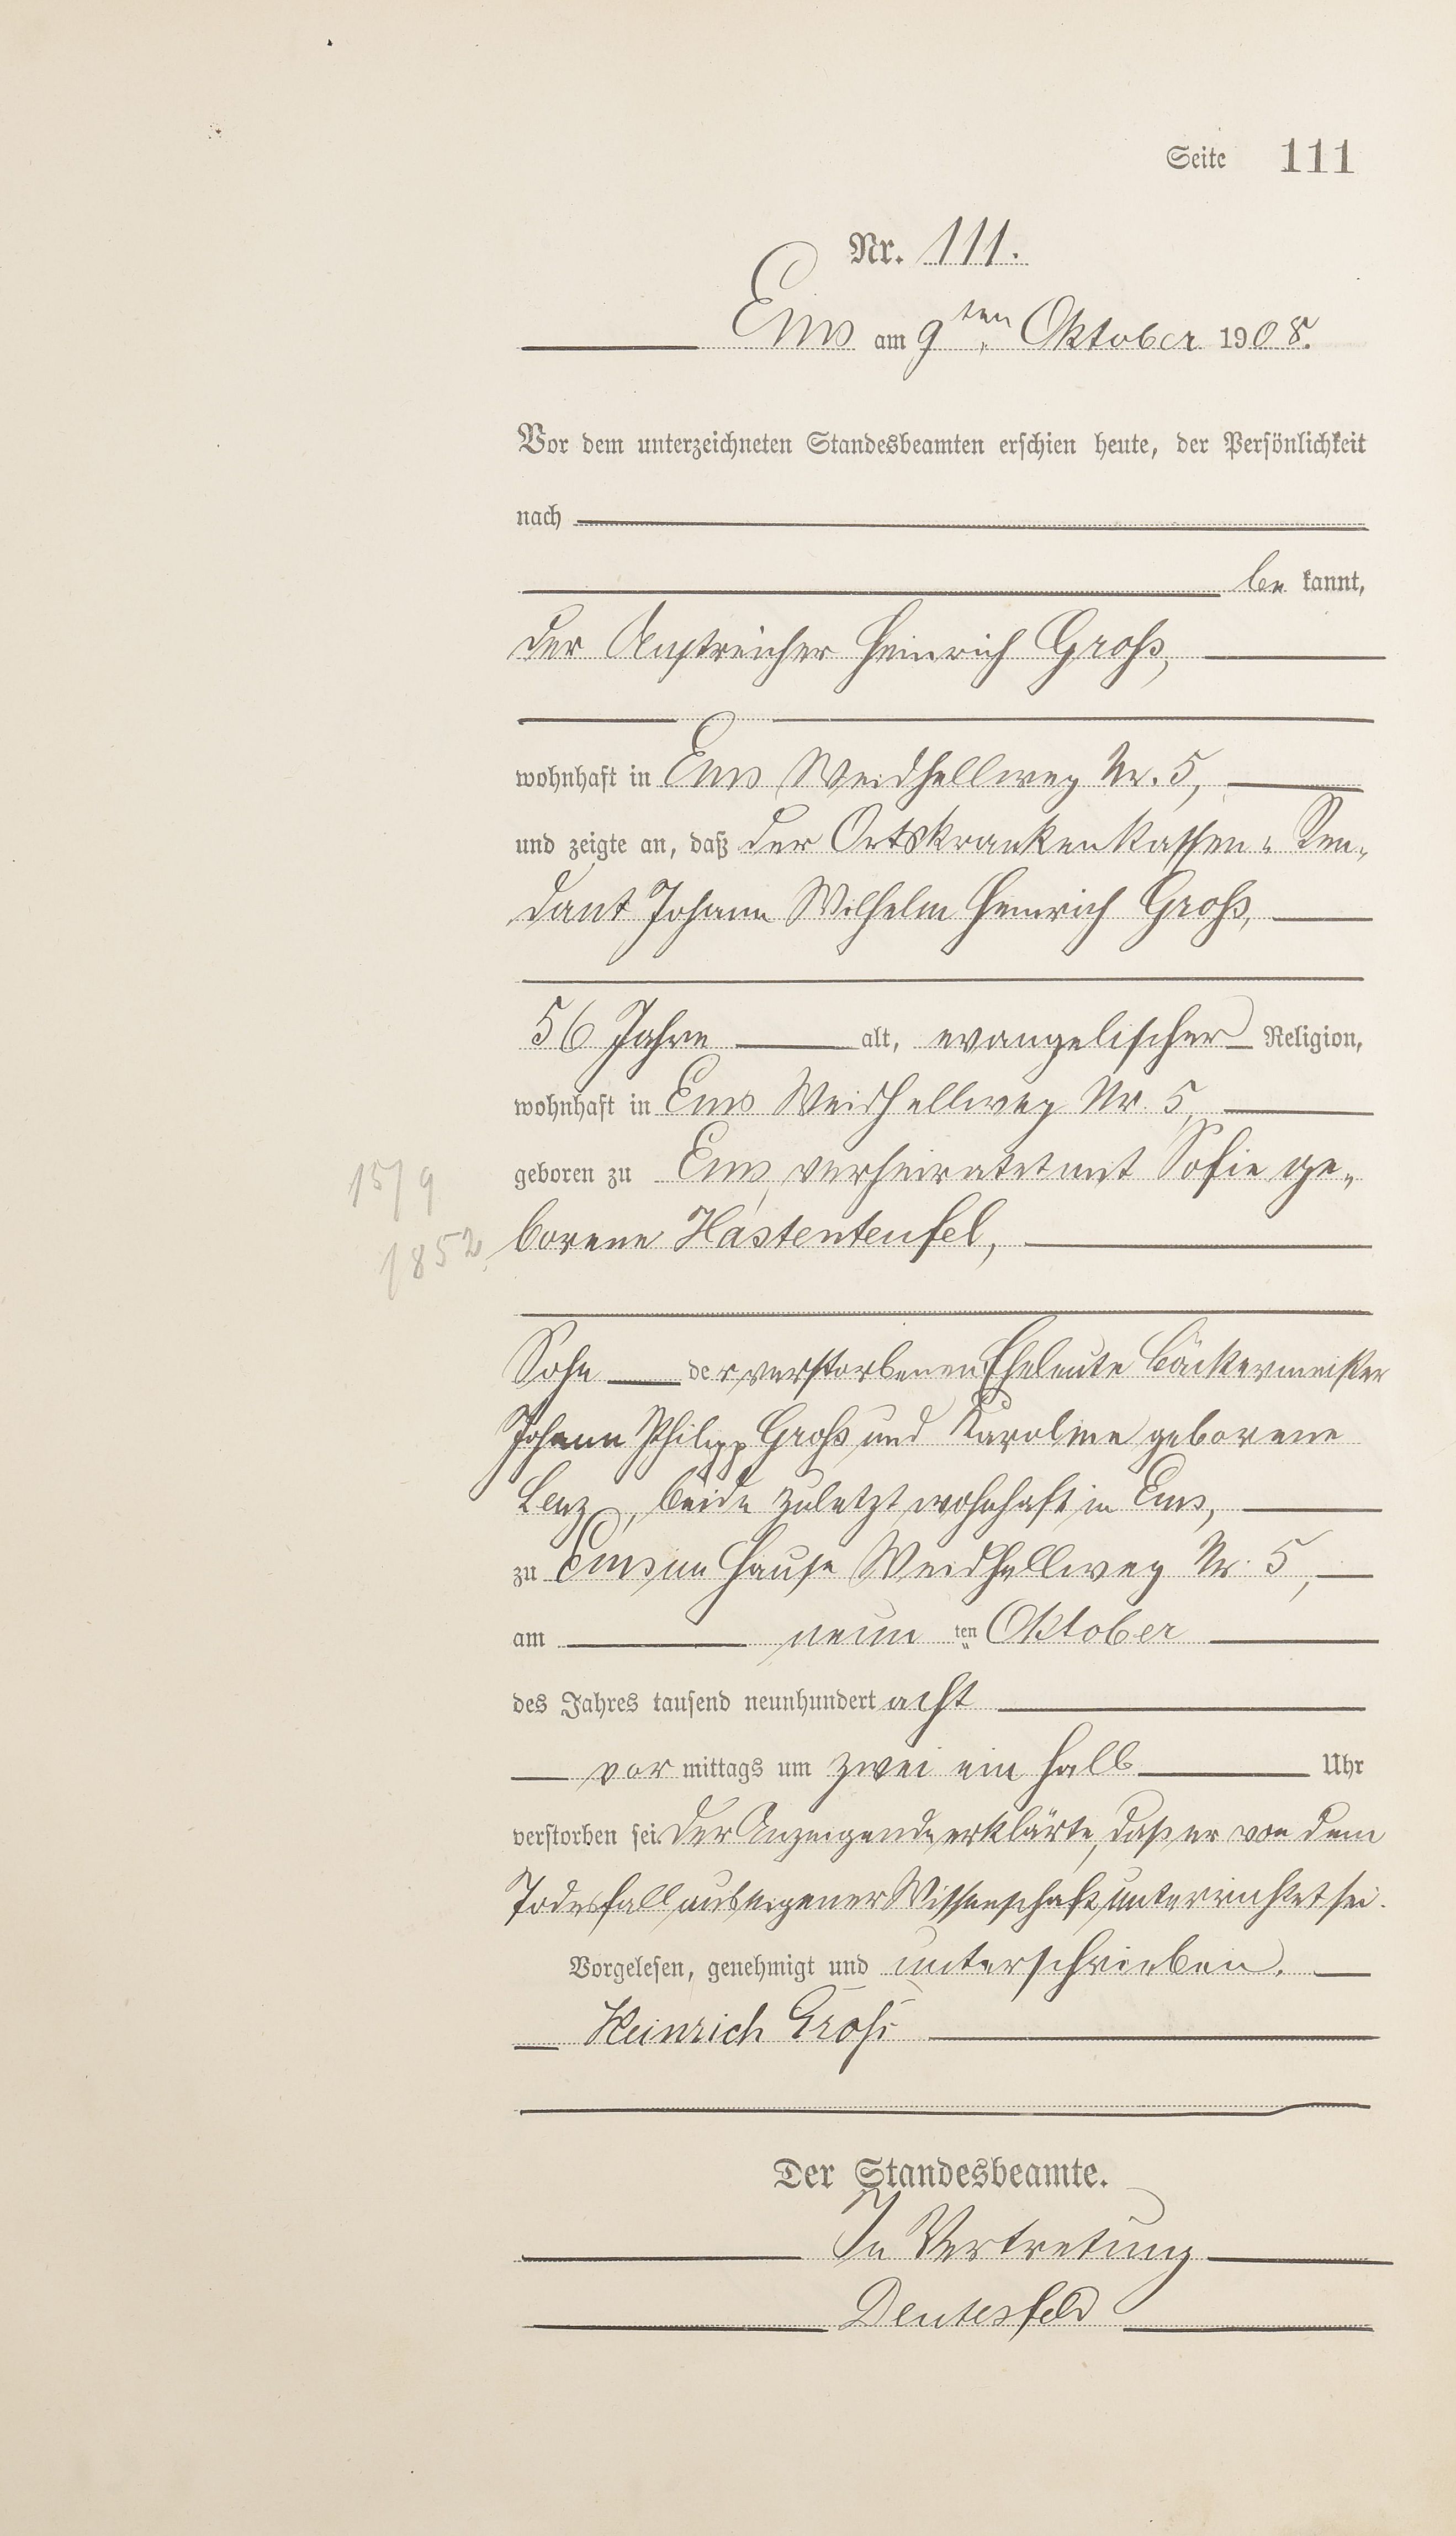 Seite 111
Nr. 111.
Ems am 9ten Oktober 1908.
Vor dem unterzeichneten Standesbeamten erschien heute, der Persönlichkeit
nach
be kannt,
der Anstreicher Heinrich Groß,
wohnhaft in Ems Weidhellweg Nr. 5,
und zeigte an, daß der Ortskrankenkassen-Ren-
dant Johann Wilhelm Heinrich Groß,
56 Jahre alt, evangelischer Religion,
wohnhaft in Ems Weidhellweg Nr. 5,
15/9
geboren zu Ems, verheiratet mit Sofie ge-
1852
borene Hastenteufel,
Sohn der verstorbenen Eheleute Bäckermeister
Johann Philipp Groß und Karoline geborene
Lenz, beide zuletzt wohnhaft in Ems,
zu Ems im Hause Weidhellweg Nr. 5,
am neun ten Oktober
des Jahres tausend neunhundert acht
vor mittags um zwei ein halb Uhr
verstorben sei. Der Anzeigende erklärte, daß er von dem
Todesfall aus eigener Wissenschaft unterrichtet sei.
Vorgelesen, genehmigt und unterschrieben.
Heinrich Groß
Der Standesbeamte.
In Vertretung